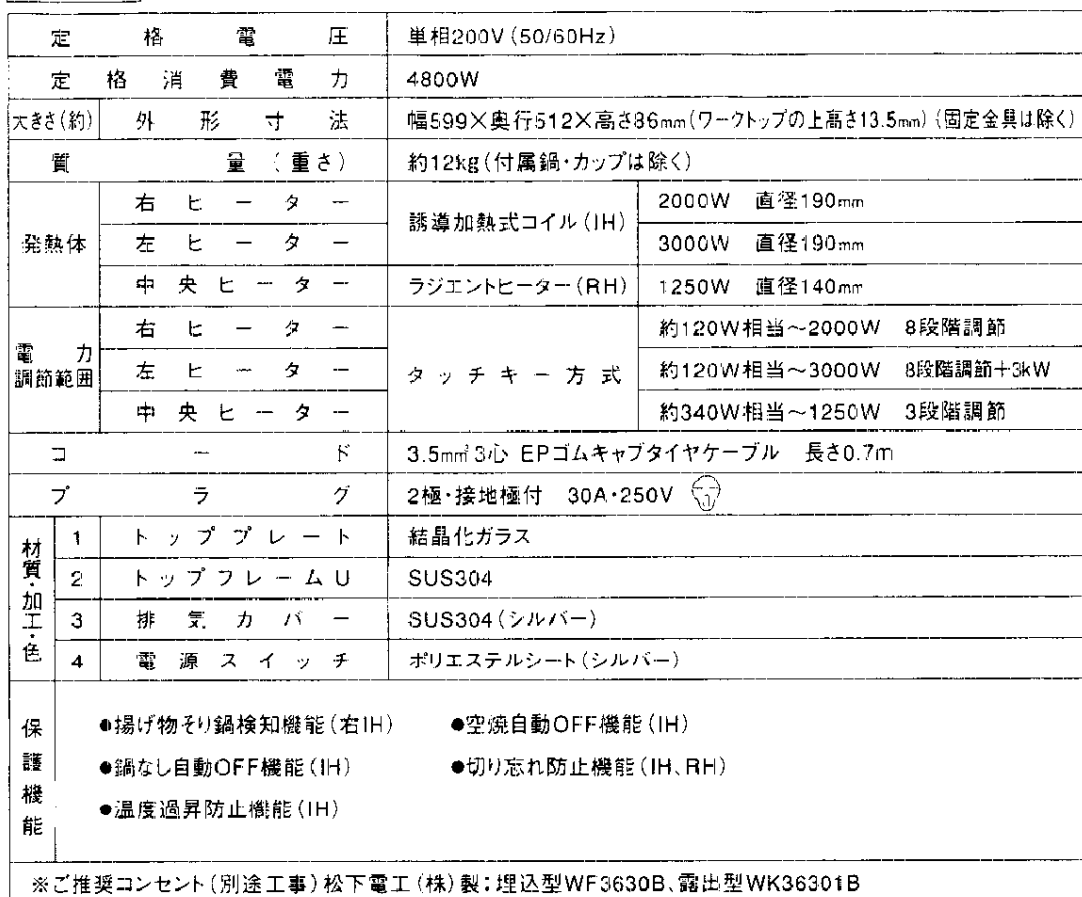 定格電圧 単相200V(50/60Hz)
定格消費電力 4800W
大きさ(約) 外形寸法 幅599×奥行512×高さ86mm(ワークトップの上高さ13.5mm)(固定金具は除く)
質量(重さ) 約12kg(付属鍋・カップは除く)
発熱体 右ヒーター 誘導加熱式コイル(IH) 2000W 直径190mm
左ヒーター 3000W 直径190mm
中央ヒーター ラジエントヒーター(RH) 1250W 直径140mm
電力調節範囲 右ヒーター タッチキー方式 約120W相当~2000W 8段階調節
左ヒーター 約120W相当~3000W 8段階調節+3kW
中央ヒーター 約340W相当~1250W 3段階調節
コード 3.5mm²3心 EPゴムキャブタイヤケーブル 長さ0.7m
プラグ 2極・接地極付 30A・250V
材質・加工・色 1 トッププレート 結晶化ガラス
2 トップフレームU SUS304
3 排気カバー SUS304(シルバー)
4 電源スイッチ ポリエステルシート(シルバー)
保護機能 ●揚げ物そり鍋検知機能(右IH) ●空焼自動OFF機能(IH)
●鍋なし自動OFF機能(IH) ●切り忘れ防止機能(IH、RH)
●温度過昇防止機能(IH)
※ご推奨コンセント(別途工事)松下電工(株)製:埋込型WF3630B、露出型WK36301B